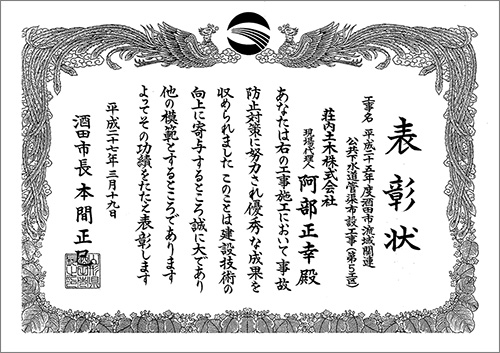 表彰状
工事名 平成二十五年度酒田市流域関連
公共下水道管渠布設工事(第5工区)
荘内土木株式会社
現場代理人 阿部正幸 殿
あなたは右の工事施工において事故
防止対策に努力され優秀な成果を
収められました このことは建設技術の
向上に寄与するところ誠に大であり
他の模範とするところであります
よってその功績をたたえ表彰します
平成二十七年三月十九日
酒田市長 本間正巳